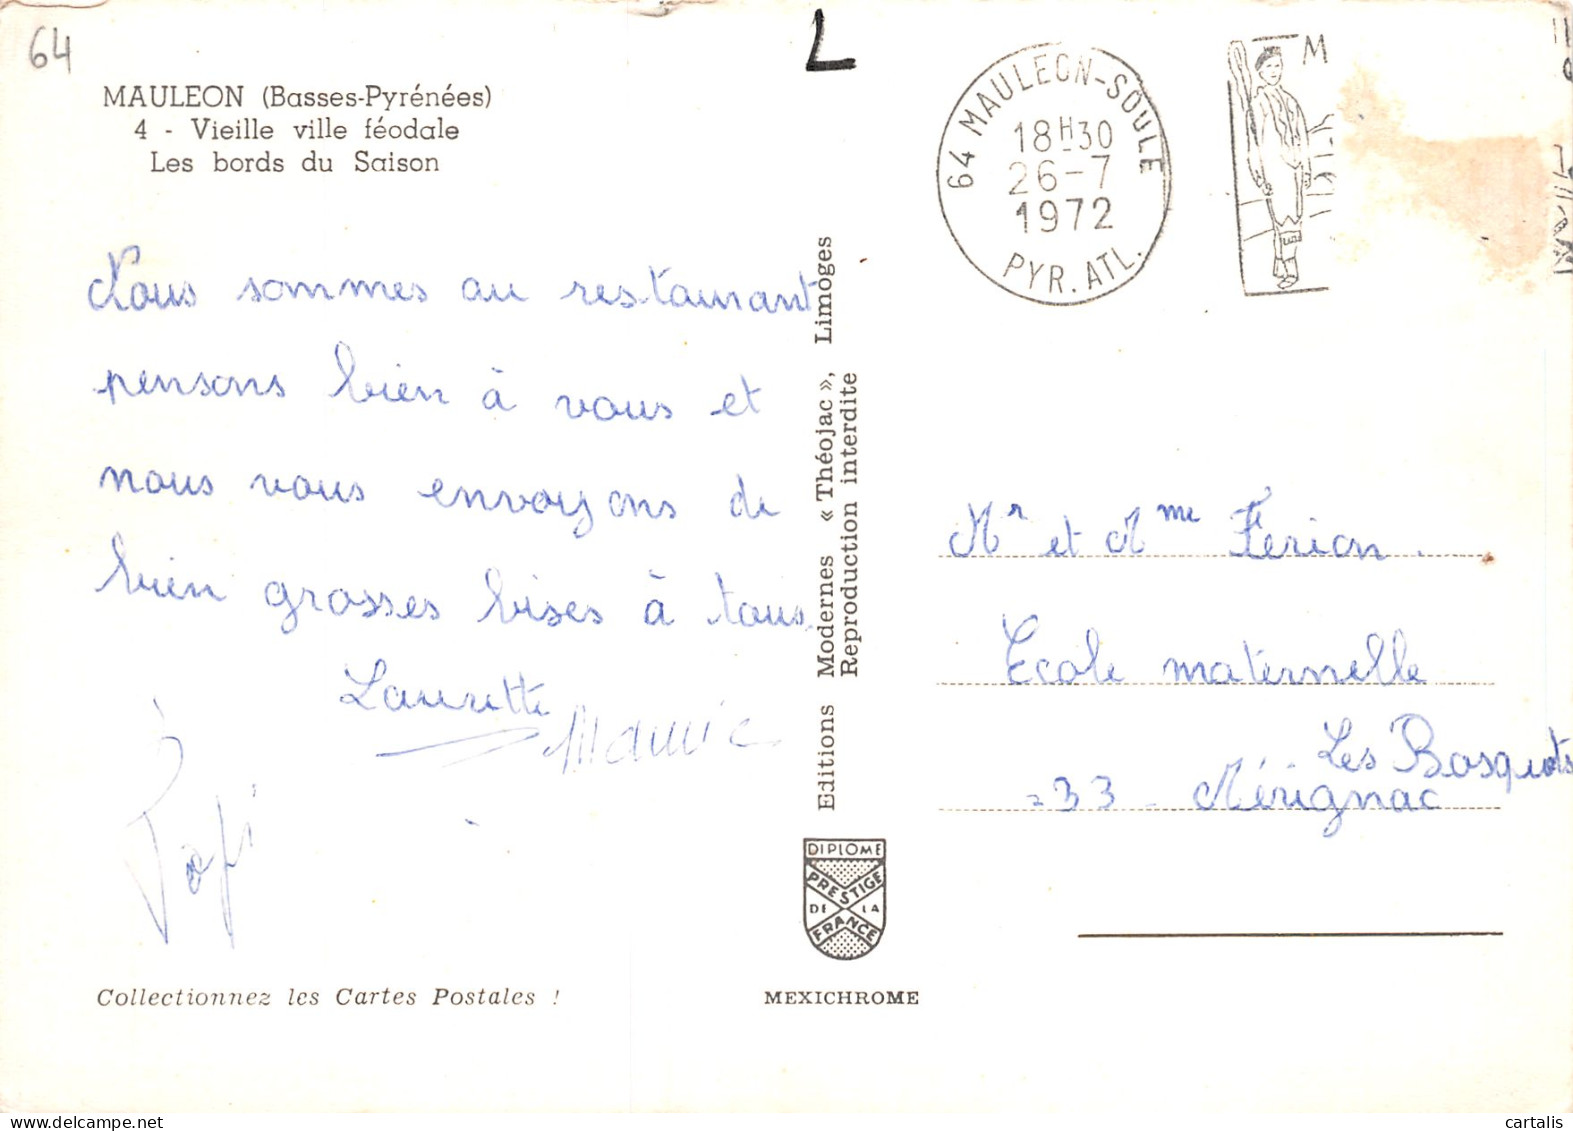 64
L
MAULEON (Basses-Pyrénées)
4 - Vieille ville féodale
Les bords du Saison
Nous sommes au restaurant
pensons bien à vous et
nous vous envoyons de
bien grosses bises à tous.
Laurette
Mamie
Papi
Collectionnez les Cartes Postales !
Editions Modernes « Théojac », Limoges
Reproduction interdite
DIPLOME
PRESTIGE
DE LA
FRANCE
MEXICHROME
64 MAULEON-SOULE
18H30
26-7
1972
PYR. ATL.
M
Mr et Mme Ferion.
Ecole maternelle
Les Bosquets
33 - Mérignac
cartalis
delcampe.net